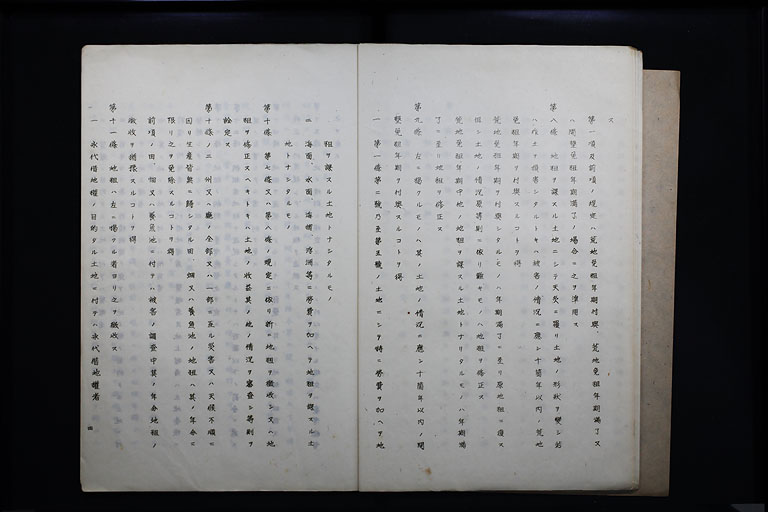 ス
第一項及前項ノ規定ハ荒地免租年期付與、荒地免租年期滿了又
ハ開墾免租年期滿了ノ場合ニ之ヲ準用ス
第八條 地租ヲ課スル土地ニシテ天災ニ罹リ土地ノ形狀ヲ變シ若
ハ作土ヲ損害シタルトキハ被害ノ情況ニ應シ十箇年以內ノ荒地
免租年期ヲ付與スルコトヲ得
荒地免租年期ヲ付與シタルモノハ年期滿了ニ至リ原地租ニ復ス
但シ土地ノ情況原等則ニ依リ難キモノハ地租ヲ修正ス
荒地免租年期中他ノ地租ヲ課スル土地トナリタルモノハ年期滿
了ニ至リ地租ヲ修正ス
第九條 左ニ揭クルモノハ其ノ土地ノ情況ニ應シ十箇年以內ノ開
墾免租年期ヲ付與スルコトヲ得
一 第一條第二號乃至第五號ノ土地ニシテ特ニ勞費ヲ加ヘテ地
租ヲ課スル土地トナシタルモノ
二 海面、水面、海埔、浮洲等ニ勞費ヲ加ヘテ地租ヲ課スル土
地トナシタルモノ
第十條 第七條又ハ第八條ノ規定ニ依リ新ニ地租ヲ徵收シ又ハ地
租ヲ修正スヘキトキハ土地ノ收益其ノ他ノ情況ヲ審査シ等則ヲ
詮定ス
第十條ノ二 州又ハ廳ノ全部又ハ一部ニ亙ル災害又ハ天候不順ニ
因リ生產皆無ニ歸シタル田、畑又ハ養魚池ノ地租ハ其ノ年分ニ
限リ之ヲ免除スルコトヲ得
前項ノ田、畑又ハ養魚池ニ付テハ被害ノ調査中其ノ年分地租ノ
徵收ヲ猶豫スルコトヲ得
第十一條 地租ハ左ニ揭クル者ヨリ之ヲ徵收ス
一 永代借地權ノ目的タル土地ニ付テハ永代借地權者
四